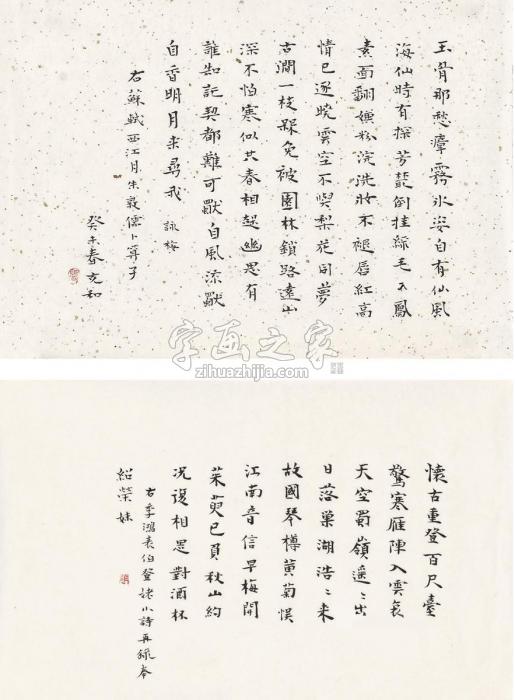 玉骨那愁瘴霧冰姿自有仙風
海仙時有探芳叢倒挂綠毛么鳳
素面翻嫌粉涴洗妝不褪唇紅高
情已逐曉雲空不與梨花同夢
古澗一枝槑免被園林鎖路遠山
深不怕寒似共春相趓幽思有
誰知託契都難可獨自風流獨
自香明月来尋我 詠梅
右蘇軾西江月朱敦儒卜算子
癸未春充和
字画之家
zihuazhijia.com
懷古重登百尺臺
驚寒雁陣入雲哀
天空蜀嶺遥〻出
日落巢湖浩〻来
故國琴樽黃菊悮
江南音信早梅開
茱萸已負秋山約
況復相思對酒杯
右李鴻表伯登姥小詩再錄奉
紹榮妹